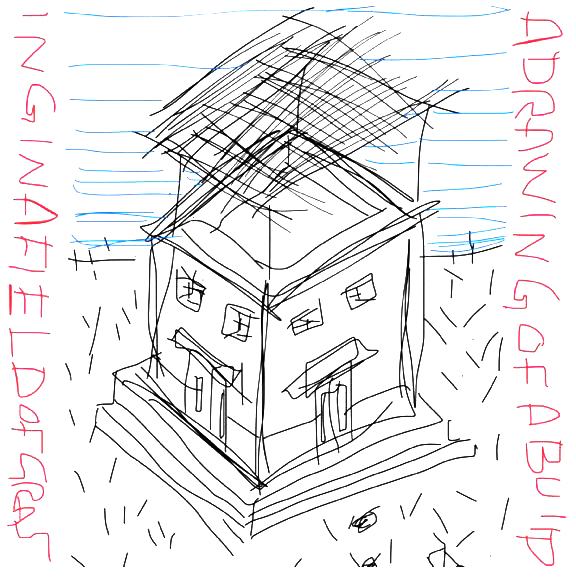 A DRAWING OF A BUILD
ING IN A FIELD OF GRAS